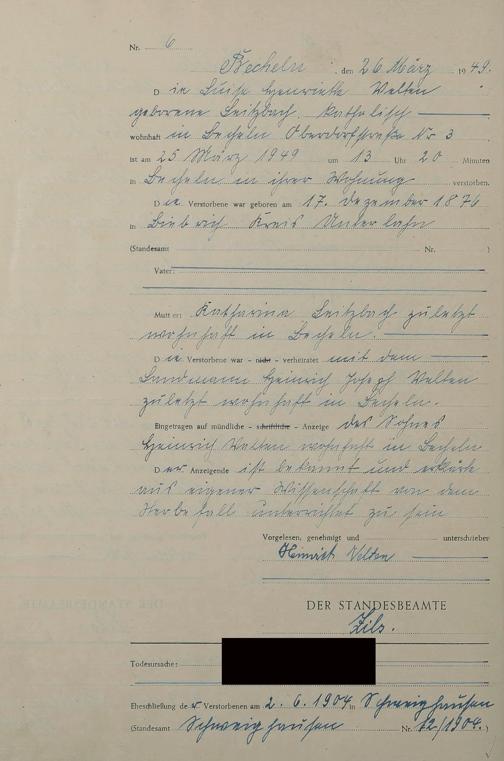 Nr. 6
Becheln, den 26 März 1949.
Die Luise Henriette Velten
geborene Leitzbach. Katholisch
wohnhaft in Becheln Oberdorfstraße Nr 3
ist am 25 März 1949 um 13 Uhr 20 Minuten
in Becheln in ihrer Wohnung verstorben.
Die Verstorbene war geboren am 17. Dezember 1876
in Biebrich Kreis Unterlahn
(Standesamt Nr. )
Vater:
Mutter: Katharina Leitzbach zuletzt
wohnhaft in Becheln.
Die Verstorbene war - nicht - verheiratet mit dem
Landmann Heinrich Joseph Velten
zuletzt wohnhaft in Becheln.
Eingetragen auf mündliche - schriftliche - Anzeige des Sohnes
Heinrich Velten wohnhaft in Becheln
Der Anzeigende ist bekannt und erklärte
aus eigener Wissenschaft von dem
Sterbefall unterrichtet zu sein
Vorgelesen, genehmigt und unterschrieben
Heinrich Velten
DER STANDESBEAMTE
Zils.
Todesursache:
Eheschließung der Verstorbenen am 2. 6. 1904 in Schweighausen
(Standesamt Schweighausen Nr. 12/1904.)